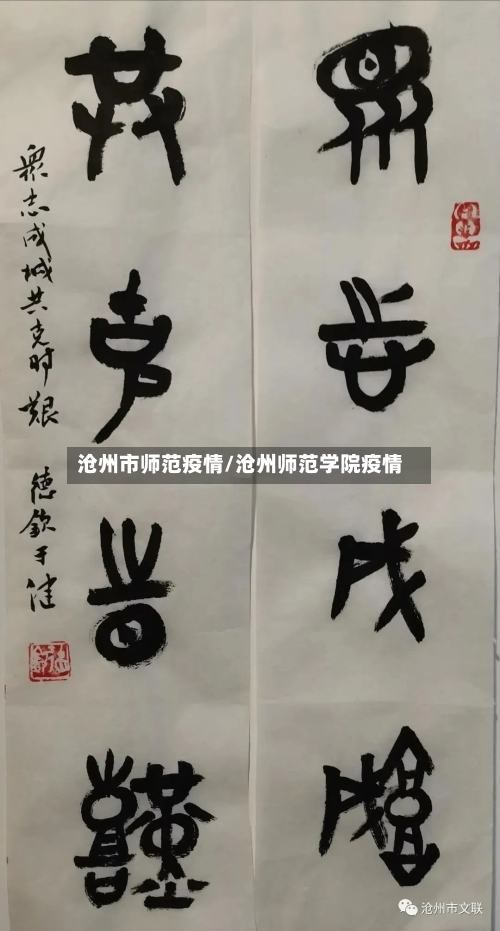 眾志成城
共克時艱
眾志成城共克时艱 德欽于健
沧州市师范疫情/沧州师范学院疫情
沧州市文联